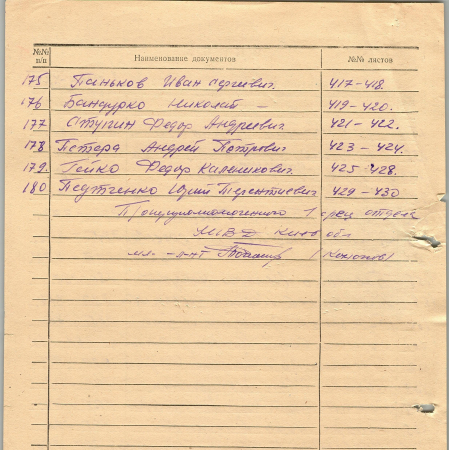 №№ п/п Наименование документов №№ листов
175 Паньков Иван Сергеевич. 417-418.
176 Бандурко Николай — 419-420.
177 Ступин Федор Андреевич. 421-422.
178 Петера Андрей Петрович 423-424.
179. Гейко Федор Каленикович. 425-428.
180 Педтченко Юрий Терентиевич 429-430
1 спец отдела
МВД Киев обл
мл. л-нт